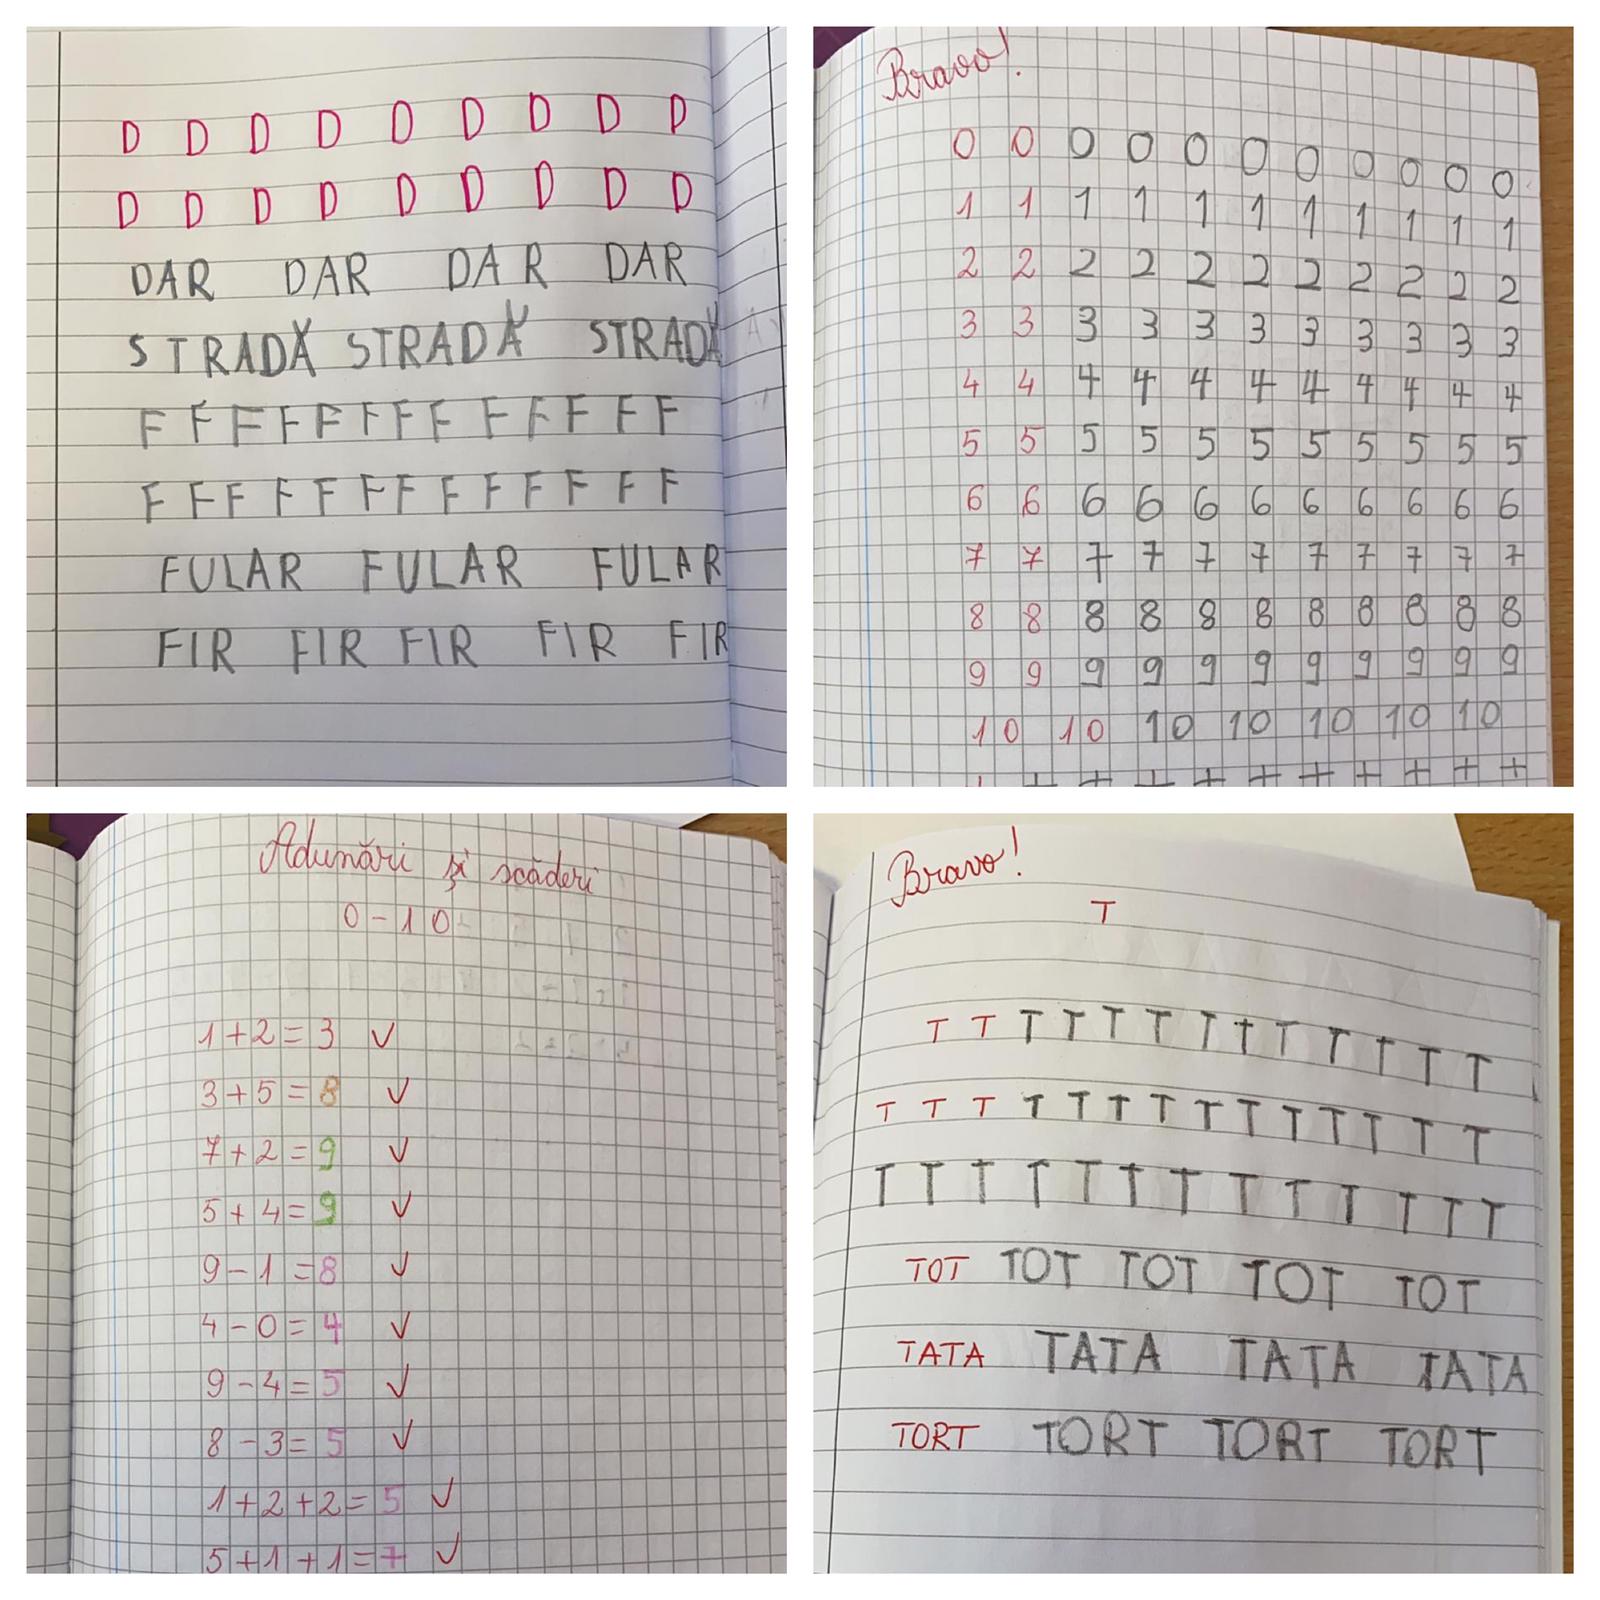 D D D D D D D D D
D D D D D D D D D
DAR DAR DAR DAR
STRADĂ STRADĂ STRADĂ
F F F F F F F F F F F F F
F F F F F F F F F F F F F
FULAR FULAR FULAR
FIR FIR FIR FIR FIR
Bravo!
0 0 0 0 0 0 0 0 0 0 0
1 1 1 1 1 1 1 1 1 1 1
2 2 2 2 2 2 2 2 2 2 2
3 3 3 3 3 3 3 3 3 3 3
4 4 4 4 4 4 4 4 4 4 4
5 5 5 5 5 5 5 5 5 5 5
6 6 6 6 6 6 6 6 6 6 6
7 7 7 7 7 7 7 7 7 7 7
8 8 8 8 8 8 8 8 8 8 8
9 9 9 9 9 9 9 9 9 9 9
10 10 10 10 10 10 10
+ + + + + + + + +
Adunări și scăderi
0-10
1+2=3 ✓
3+5=8 ✓
7+2=9 ✓
5+4=9 ✓
9-1=8 ✓
4-0=4 ✓
9-4=5 ✓
8-3=5 ✓
1+2+2=5 ✓
5+1+1=7 ✓
Bravo!
T
T T T T T T T T T T T T T
T T T T T T T T T T T T T T
T T T T T T T T T T T T T
TOT TOT TOT TOT TOT
TATA TATA TATA TATA
TORT TORT TORT TORT